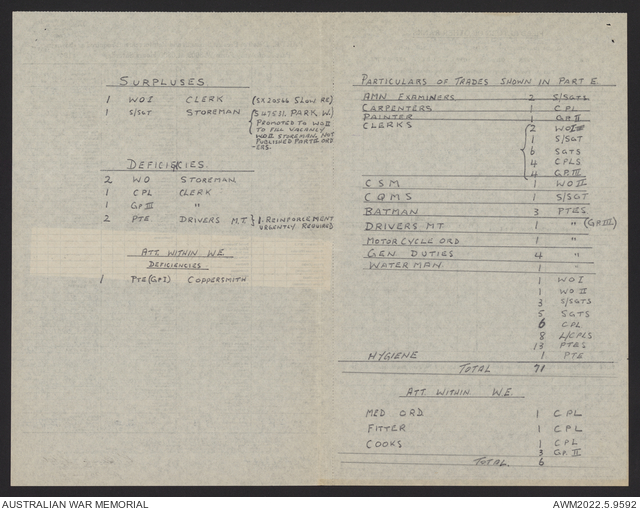 SURPLUSES.
1 WOI CLERK (SX20566 SLOW RE)
1 S/SGT STOREMAN { SG7531. PARK. W.
PROMOTED TO WOII
TO FILL VACANCY
WOII STOREMAN, NOT
PUBLISHED PART II ORD
-ERS.
DEFICIECIES.
2 WO STOREMAN
1 CPL CLERK
1 GP III "
2 PTE. DRIVERS M.T. } 1. REINFORCEMENT
URGENTLY REQUIRED
ATT. WITHIN W.E.
DEFICIENCIES
1 PTE(GP I) COPPERSMITH
PARTICULARS OF TRADES SHOWN IN PART E.
AMN EXAMINERS 2 S/SGTS
CARPENTERS 1 CPL
PAINTER 1 GP II
CLERKS { 2 WOII
1 S/SGT
6 SGTS
4 CPLS
4 GP III
C S M 1 WO II
C Q M S 1 S/SGT
BATMAN 3 PTES
DRIVERS MT 1 " (GP III)
MOTOR CYCLE ORD 1 "
GEN DUTIES 4 "
WATER MAN 1 "
1 WO I
1 WO II
3 S/SGTS
5 SGTS
6 CPL
8 L/CPLS
13 PTES
HYGIENE 1 PTE
TOTAL 71
ATT. WITHIN W.E.
MED ORD 1 CPL
FITTER 1 CPL
COOKS 1 CPL
3 GP II
TOTAL. 6
AUSTRALIAN WAR MEMORIAL
AWM2022.5.9592